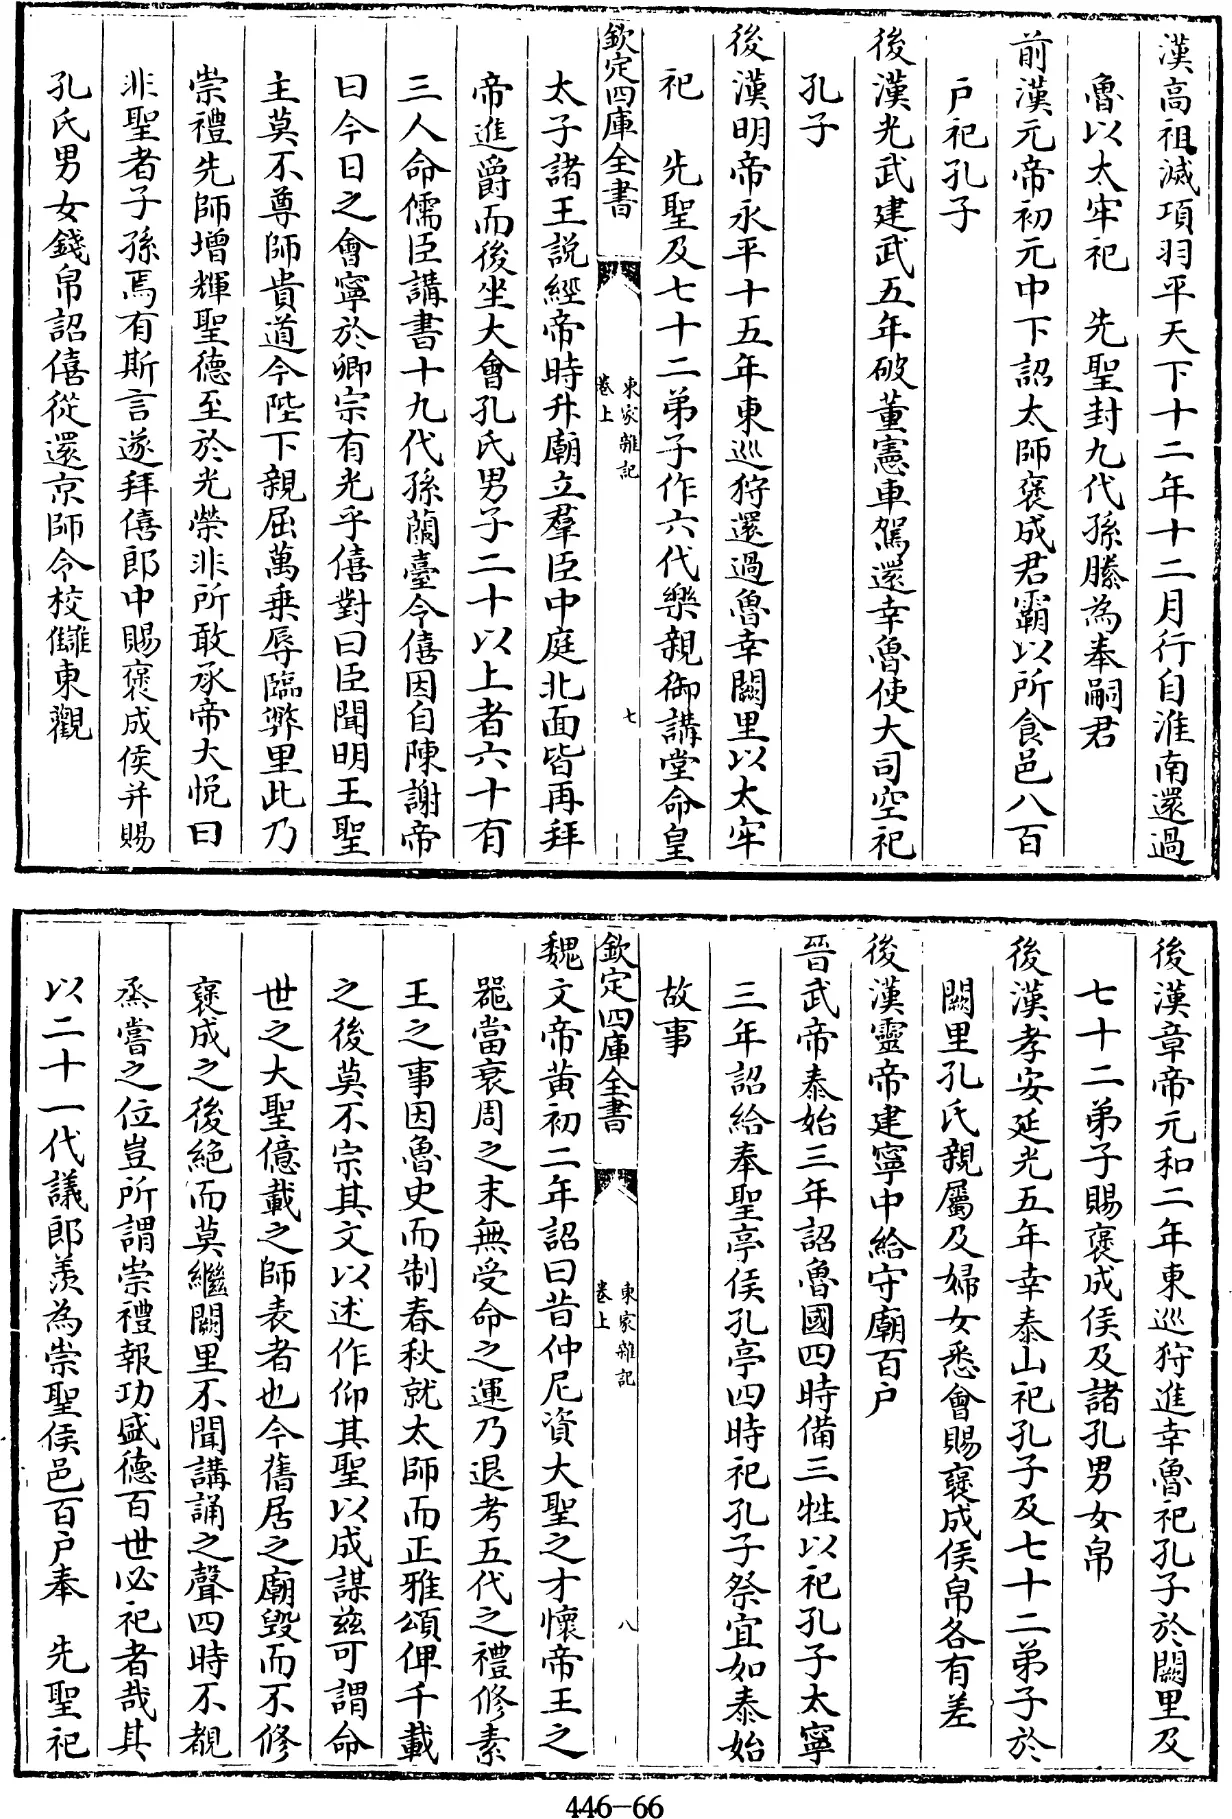 漢高祖滅項羽平天下十二年十二月行自淮南還過
魯以太牢祀　先聖封九代孫騰為奉嗣君
前漢元帝初元中下詔太師褒成君霸以所食邑八百
户祀孔子
後漢光武建武五年破董憲車駕還幸魯使大司空祀
孔子
後漢明帝永平十五年東巡狩還過魯幸闕里以太牢
祀　先聖及七十二弟子作六代樂親御講堂命皇
欽定四庫全書
東家雜記
卷上
七
太子諸王説經帝時升廟立羣臣中庭北面皆再拜
帝進爵而後坐大會孔氏男子二十以上者六十有
三人命儒臣講書十九代孫蘭臺令僖因自陳謝帝
曰今日之會寧於卿宗有光乎僖對曰臣聞明王聖
主莫不尊師貴道今陛下親屈萬乗辱臨弊里此乃
崇禮先師增輝聖德至於光榮非所敢承帝大悦曰
非聖者子孫焉有斯言遂拜僖郎中賜褒成侯并賜
孔氏男女錢帛詔僖從還京師令校讎東觀
後漢章帝元和二年東巡狩進幸魯祀孔子於闕里及
七十二弟子賜褒成侯及諸孔男女帛
後漢孝安延光五年幸泰山祀孔子及七十二弟子於
闕里孔氏親屬及婦女悉會賜褒成侯帛各有差
後漢靈帝建寧中給守廟百户
晉武帝泰始三年詔魯國四時備三牲以祀孔子太寧
三年詔給奉聖亭侯孔亭四時祀孔子祭宜如泰始
故事
欽定四庫全書
東家雜記
卷上
八
魏文帝黄初二年詔曰昔仲尼資大聖之才懷帝王之
器當衰周之末無受命之運乃退考五代之禮修素
王之事因魯史而制春秋就太師而正雅頌俾千載
之後莫不宗其文以述作仰其聖以成謀兹可謂命
世之大聖億載之師表者也今舊居之廟毁而不修
褒成之後絶而莫繼闕里不聞講誦之聲四時不覩
烝嘗之位豈所謂崇禮報功盛德百世必祀者哉其
以二十一代議郎羨為崇聖侯邑百户奉　先聖祀
446-66